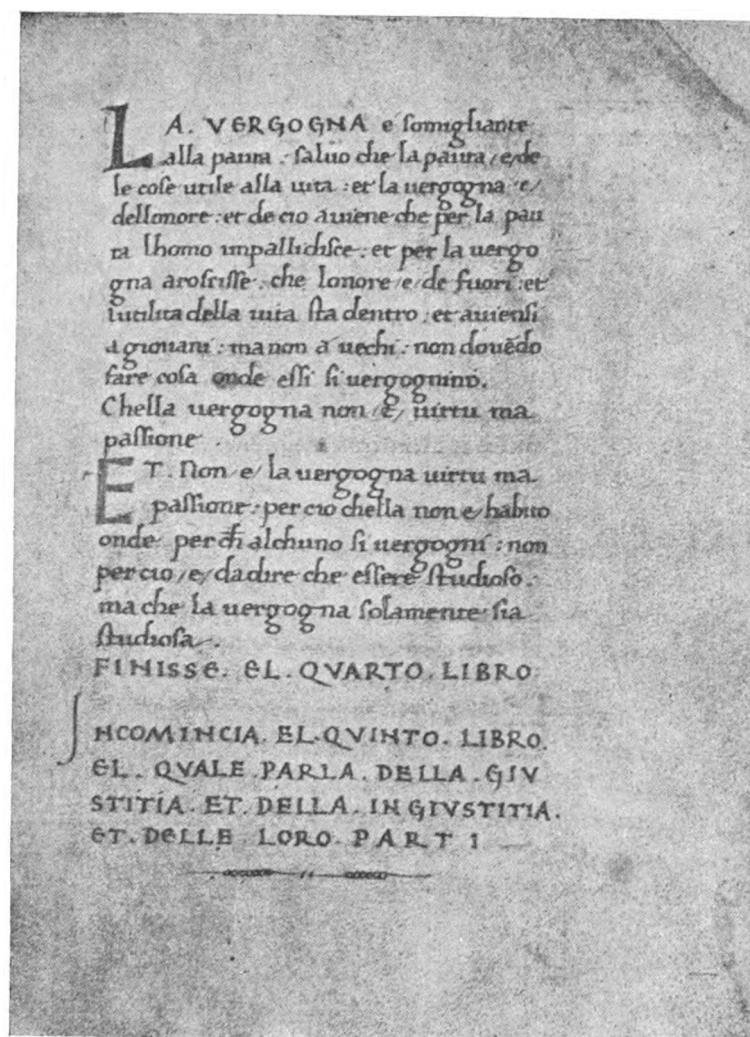 LA. VERGOGNA e somigliante
alla paura . saluo che la paura /e/ de
le cose utile alla uita : et la uergogna /e/
dellonore : et de cio auiene che per la pau
ra lhomo impallidisce : et per la uergo
gna aroscisse . che lonore /e/ de fuori : et
lutilita della uita sta dentro : et auiensi
a giouani : ma non a uechi : non douēdo
fare cosa onde essi si uergognino.
Chella uergogna non /e/ uirtu ma
passione .
ET. Non e/ la uergogna uirtu ma
passione : per cio chella non e/ habito
onde perch̄ alchuno si uergogni : non
per cio /e/ da dire che essere studioso .
ma che la uergogna solamente sia
studiosa .
FINISSE. EL. QVARTO. LIBRO
INCOMINCIA. EL. QVINTO. LIBRO.
EL. QVALE. PARLA. DELLA. GIV
STITIA. ET. DELLA. INGIVSTITIA.
ET. DELLE LORO. PARTI